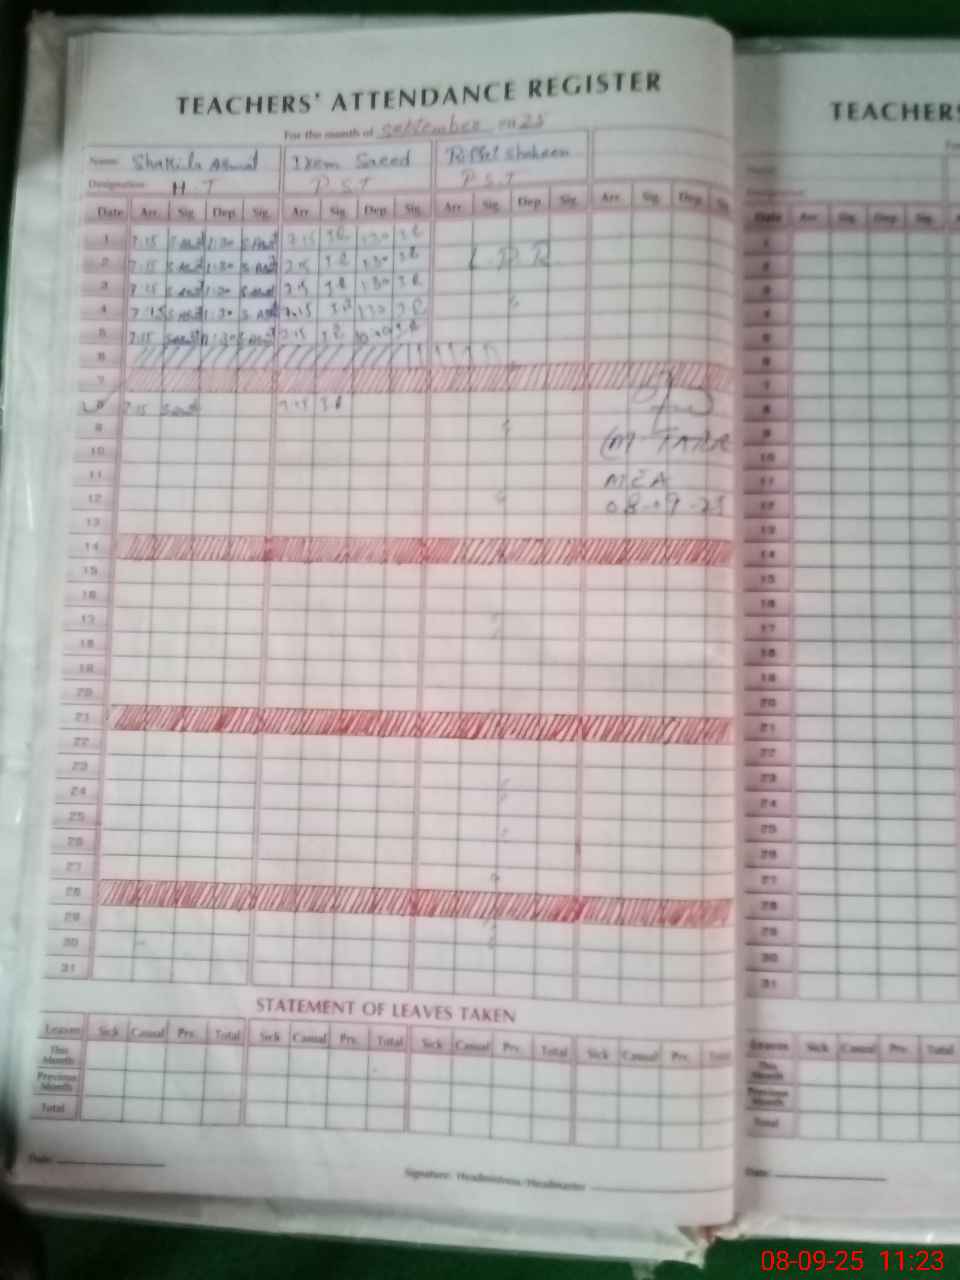 TEACHERS' ATTENDANCE REGISTER
For the month of September 2025
Name: Shakila Asmat Irem Saeed Riffat Shaheen
Designation: H.T P.S.T P.S.T
Date Arr. Sig. Dep. Sig. Arr. Sig. Dep. Sig. Arr. Sig. Dep. Sig. Arr. Sig. Dep. Sig.
1 7:15 1:30 7:15 1:30
2 7:15 1:30 7:15 1:30 L.P.R
3 7:15 1:30 7:15 1:30
4 7:15 1:30 7:15 1:30
5 7:15 7:15
6
7
8 7:15 7:15
9 (M
10
11 MEA
12 08-09-25
13
14
15
16
17
18
19
20
21
22
23
24
25
26
27
28
29
30
31
STATEMENT OF LEAVES TAKEN
Leaves Sick Casual Prv. Total Sick Casual Prv. Total Sick Casual Prv. Total Sick Casual Prv. Total
This Month
Previous Month
Total
Date:
Signature: Headmistress/Headmaster
TEACHERS
Date Arr. Sig. Dep. Sig.
1
2
3
4
5
6
7
8
9
10
11
12
13
14
15
16
17
18
19
20
21
22
23
24
25
26
27
28
29
30
31
Leaves Sick Casual Prv. Total
This Month
Previous Month
Total
Date:
08-09-25 11:23